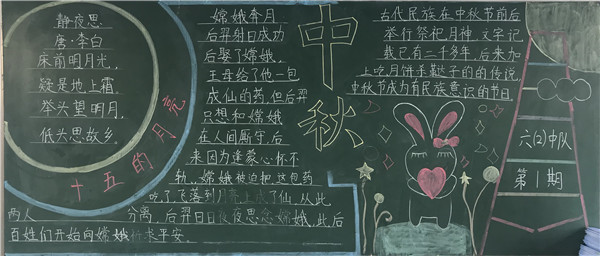 静夜思
唐·李白
床前明月光，
疑是地上霜。
举头望明月，
低头思故乡。
十五的月亮
嫦娥奔月
后羿射日成功
后娶了嫦娥，
王母给了他一包
成仙的药，但后羿
只想和嫦娥
在人间厮守后
来因为逢蒙心怀不
轨，嫦娥被迫把这包药
吃了飞落到月亮上成了仙，从此
两人 分离，后羿日日夜夜思念嫦娥，此后
百姓们开始向嫦娥祈求平安。
中秋
古代民族在中秋节前后
举行祭祀月神，文字记
载已有二千多年，后来加
上吃月饼 子的的传说，
中秋节成为有民族意识的节日。
六(2)中队
第1期